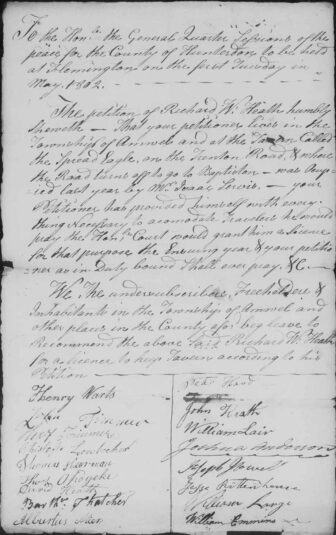 To the Honble the General Quarter Sessions of the
peace for the County of Hunterdon to be held
at Flemington on the first Tuesday in
May. 1802.
The petition of Richard W. Heath humbly
Sheweth — That your petitioner lives in the
Township of Amwell and at the Tavern Called
the Spread Eagle, on the Trenton Road, & where
the Road turns off to go to — was
last year by Mr. Isaac — your
Petitioner has provided himself with every
thing Necessary to accomodate Travelers he would
pray the Honble Court would grant him a Licence
for that purpose the Ensuing year & your petitio
ner as in Duty bound Shall ever pray, &C —
We The undersubscribers, Freeholders &
Inhabitants in the Township of Amwel and
other places in the County afsd beg leave to
Recommend the above said Richard W. Heath
for a licence to keep Tavern according to his
Petition
Henry Warts
John Heath
William Lair
Joshua Anderson
Thomas
Joseph
Jesse Rittenhouse
Thatcher
William Lange
Albertus
William Emmins